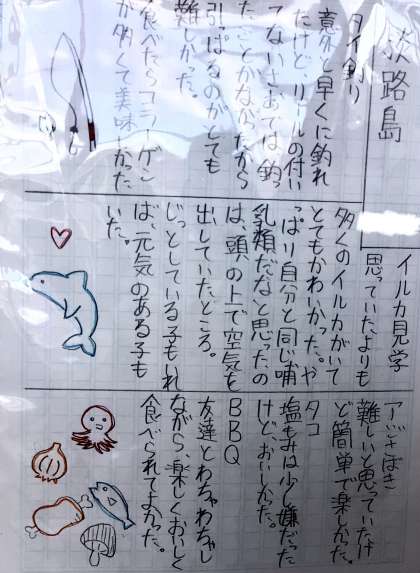 淡路島
タイ釣り
意外と早くに釣れ
たけど、リールの付い
てないさおでは、釣っ
たことがなかったから
引っぱるのがとても
難しかった。
食べたらコラーゲン
が多くて美味しかった。
イルカ見学
思っていたよりも
多くのイルカがいて
とてもかわいかった。や
っぱり自分と同じ哺
乳類だなと思ったの
は、頭の上で空気を
出していたところ。
じっとしている子もいれ
ば、元気のある子も
いた。
アジ
難しいと思っていたけ
ど簡単で楽しかった。
タコ
塩もみは少し嫌だった
けど、おいしかった。
BBQ
友達とわちゃわちゃし
ながら、楽しくおいしく
食べられてよかった。